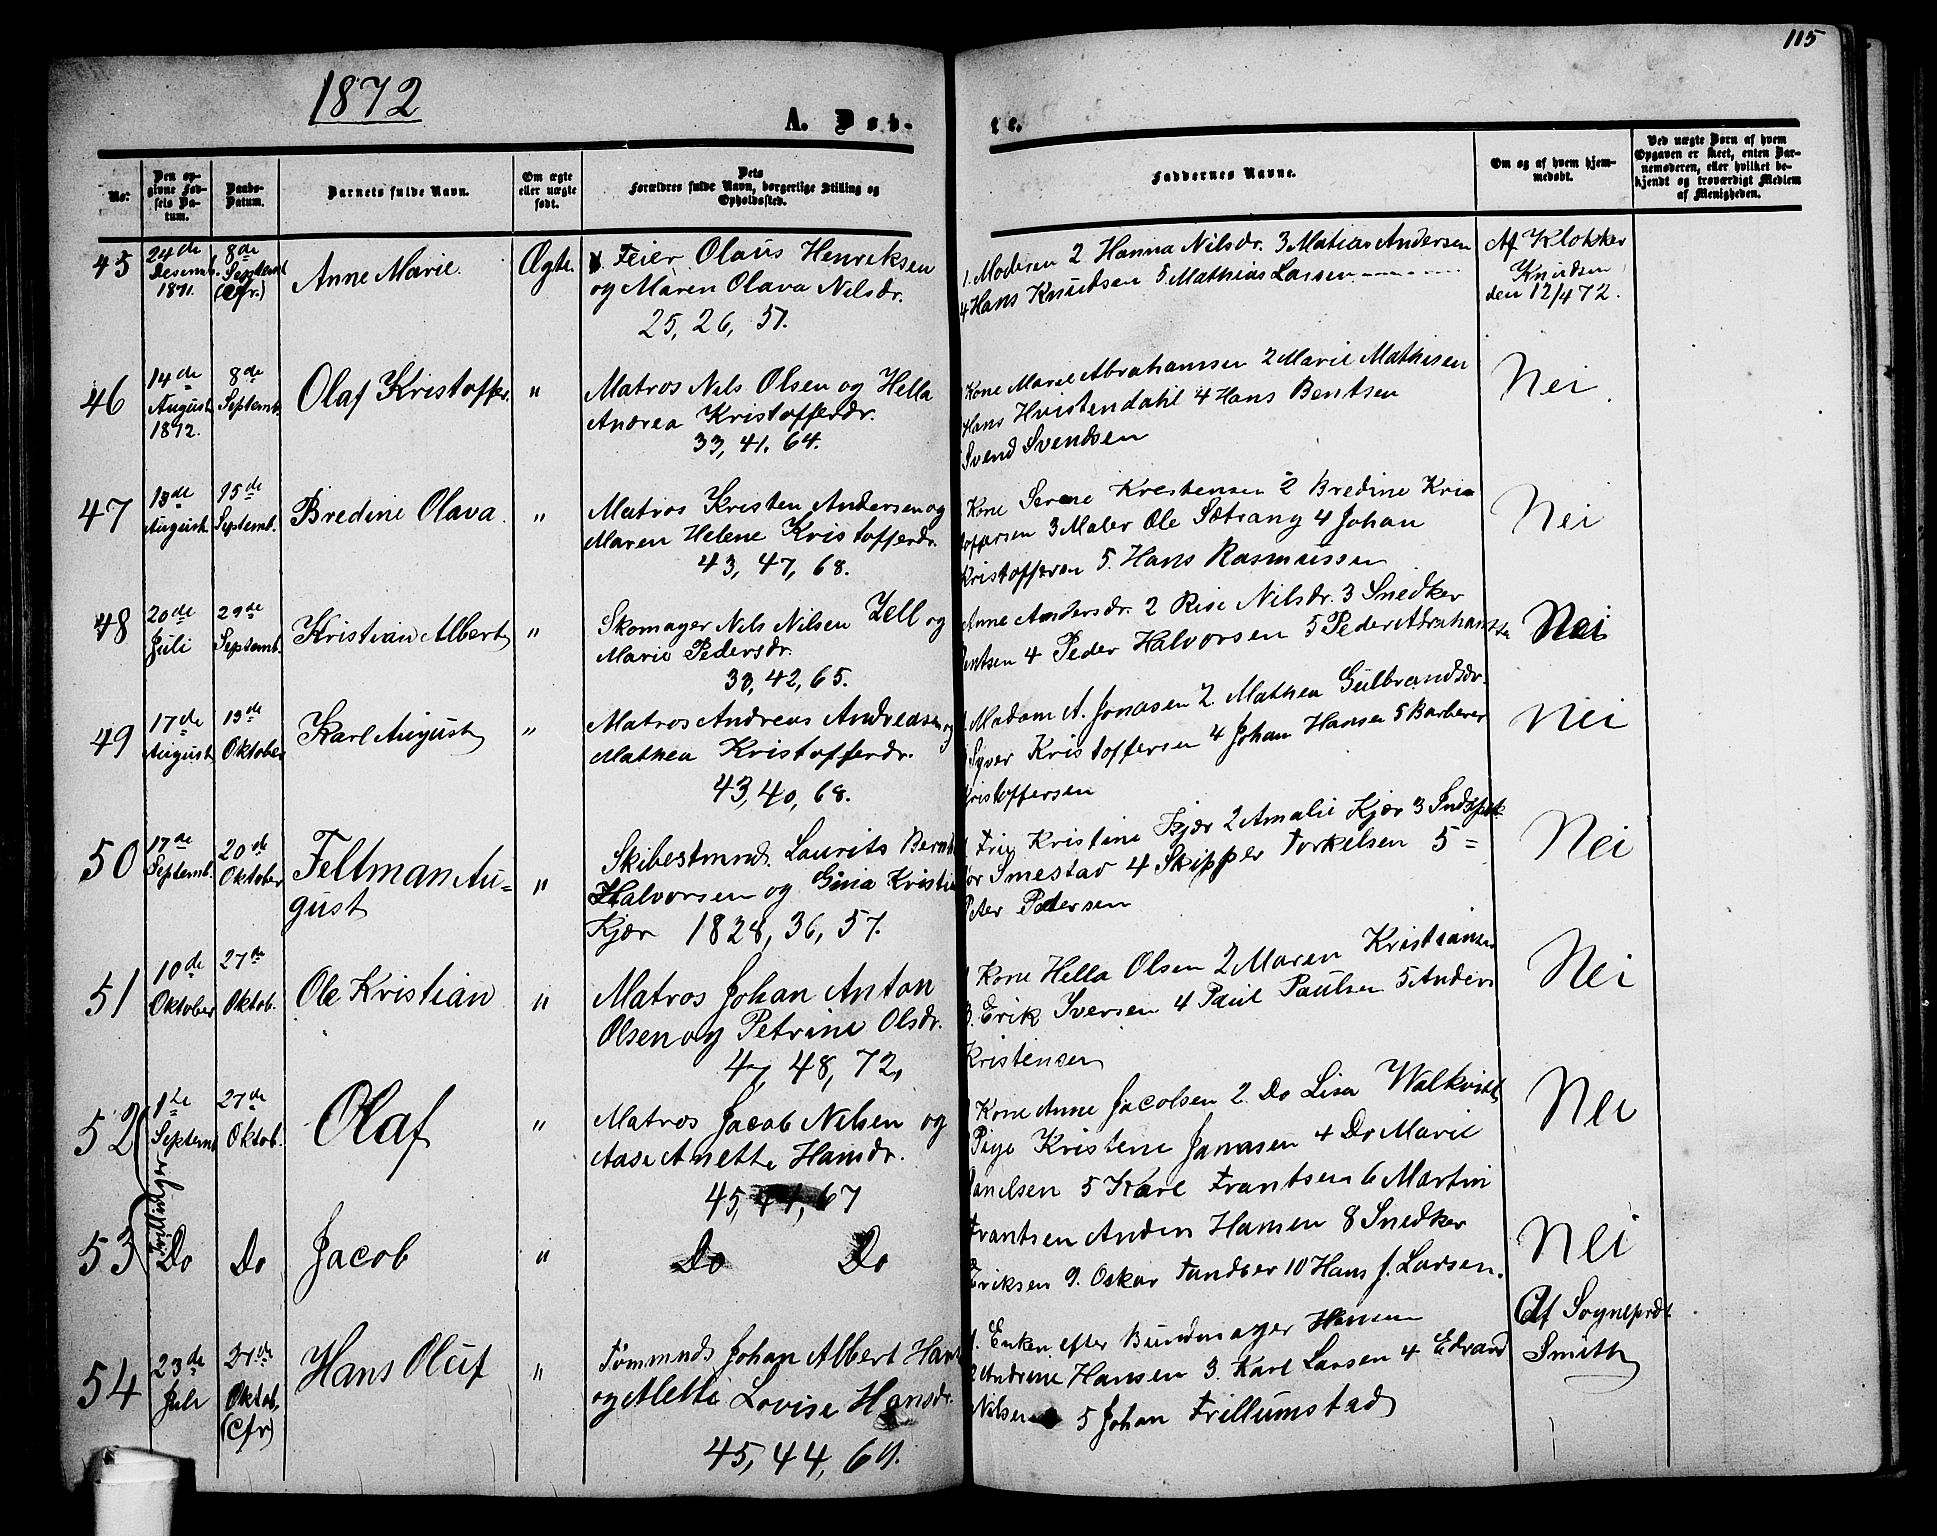 115
1872
A. Døb-
te.
No.
Den op-
givne Fød-
sels Da-
tum.
Daabs-
Datum.
Barnets fulde Navn.
Om ægte
eller uægte
født.
Dets
Forældres fulde Navn, borgerlige Stilling og
Opholdssted.
Faddernes Navne.
Om og af hvem hjem-
medøbt.
Ved uægte Børn af hvem
Opgaven er skeet, enten Bar-
nemoderen, eller hvilket be-
kjendt og troværdigt Medlem
af Menigheden.
45
24de
Desemb.
1871.
8de
Septemb
(Cfr.)
Anne Marie
Ægte.
Feier Olaus Henriksen
og Maren Olava Nilsdr.
25, 26, 57.
1. Moderen 2 Hanna Nilsdr. 3 Matias Andersen
4 Hans Knudsen 5 Mathias Larsen
Af Klokker
Knudsen
den 12/4 72.
46
14de
August
1872.
8de
Septemb.
Olaf Kristoffer.
"
Matros Nils Olsen og Hella
Andrea Kristofferdr.
33, 41. 64.
Kone Marie Abrahamsen 2 Marie Mathisen
Hans Hvistendahl 4 Hans Bentsen
Svend Svendsen
Nei
47
13de
August
15de
Septemb.
Bredine Olava
"
Matros Kristen Andersen og
Maren Helene Kristofferdr.
43, 47, 68.
Kone Serene Krestensen 2 Bredine Kris
toffersen 3 Maler Ole Sætrang 4 Johan
Kristoffersen 5. Hans Rasmussen
Nei
48
20de
Juli
29de
Septemb.
Kristian Albert
"
Skomager Nils Nilsen Zell og
Marie Pedersdr.
33, 42, 65.
Anne Andersdr. 2 Rise Nilsdr. 3 Snedker
Bentsen 4 Peder Halvorsen 5 Peder Abrahamsen
Nei
49
17de
August
13de
Oktober
Karl August
"
Matros Andreas Andreasen og
Mathea Kristofferdr.
43, 40, 68.
Madam A. Jonasen 2. Mathea Gulbrandsdr.
Syver Kristoffersen 4 Johan Hansen 5 Barberer
Kristoffersen
Nei
50
17de
Septemb.
20de
Oktober
Feltman Au=
gust
"
Skibestmnd. Laurits Bernt
Halvorsen og Gina Kristine
Kjær 1828, 36, 57.
Fru Kristine Kjær 2 Amalie Kjær 3 Indspek
tør Smestad 4 Skipper Torkelsen 5 =
Peter Pedersen
Nei
51
10de
Oktober
27de
Oktob.
Ole Kristian
"
Matros Johan Anton
Olsen og Petrine Olsdr.
47, 48, 72,
Kone Hella Olsen 2 Maren Kristiansen
3. Erik Iversen 4 Paul Paulsen 5 Anders
Kristensen
Nei
52
1te
Septemb
27de
Oktob.
Olaf
"
Matros Jacob Nilsen og
Aase Anette Hansdr.
45, 41, 67
Kone Anne Jacobsen 2. Do Lisa Walkvist
Pige Kristene Jonasen 4 Do Marie
Danelsen 5 Karl Frantsen 6 Martin
Nei
Trillinger
53
Do
Do
Jacob
"
Do Do
Frantsen Anders Hansen 8 Snedker
Eriksen 9. Oskar Tandber 10 Hans J. Larsen.
Nei
54
23de
Juli
27de
Oktob.
(Cfr)
Hans Oluf
"
Tømmnds Johan Albert Hans
og Alette Lovise Hansdr.
45, 44, 69.
1. Enken efter Bundmager Hansen
2 Andrene Hansen 3. Karl Larsen 4 Edvard
Nilsen 5 Johan Trillumstad
Af Sogneprst
Smith